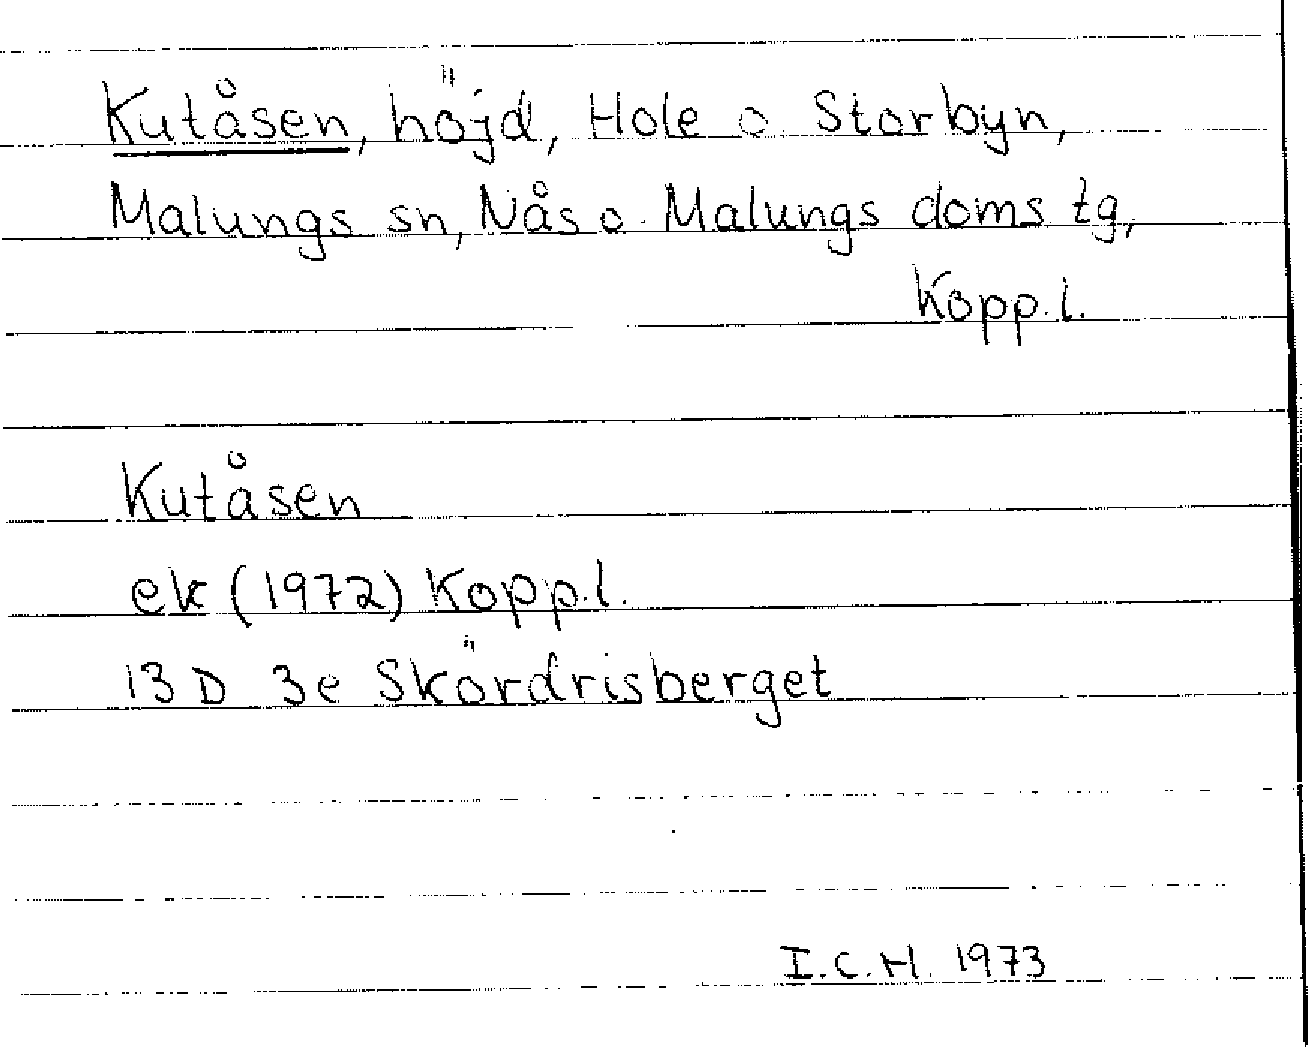 Kutåsen, höjd, Hole o Storbyn,
Malungs sn, Nås o. Malungs doms tg,
Kopp. l.
Kutåsen
ek (1972) Kopp. l.
13 D 3e Skördrisberget
I.C.H. 1973